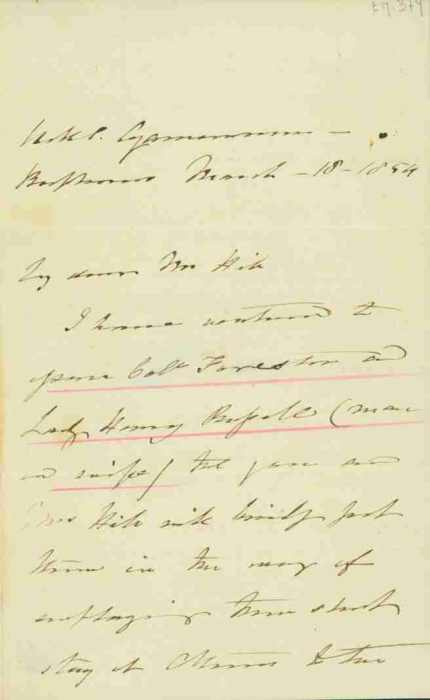 H.M.S. Agamemnon —
Bosphorus March - 18 - 1854
My dear Mr Hill
I have ventured to
Colt Forester and
Lady Henry Russell (man
and wife) tht you and
Mrs Hill will kindly put
them in the way of
employing their short
stay at Athens to the